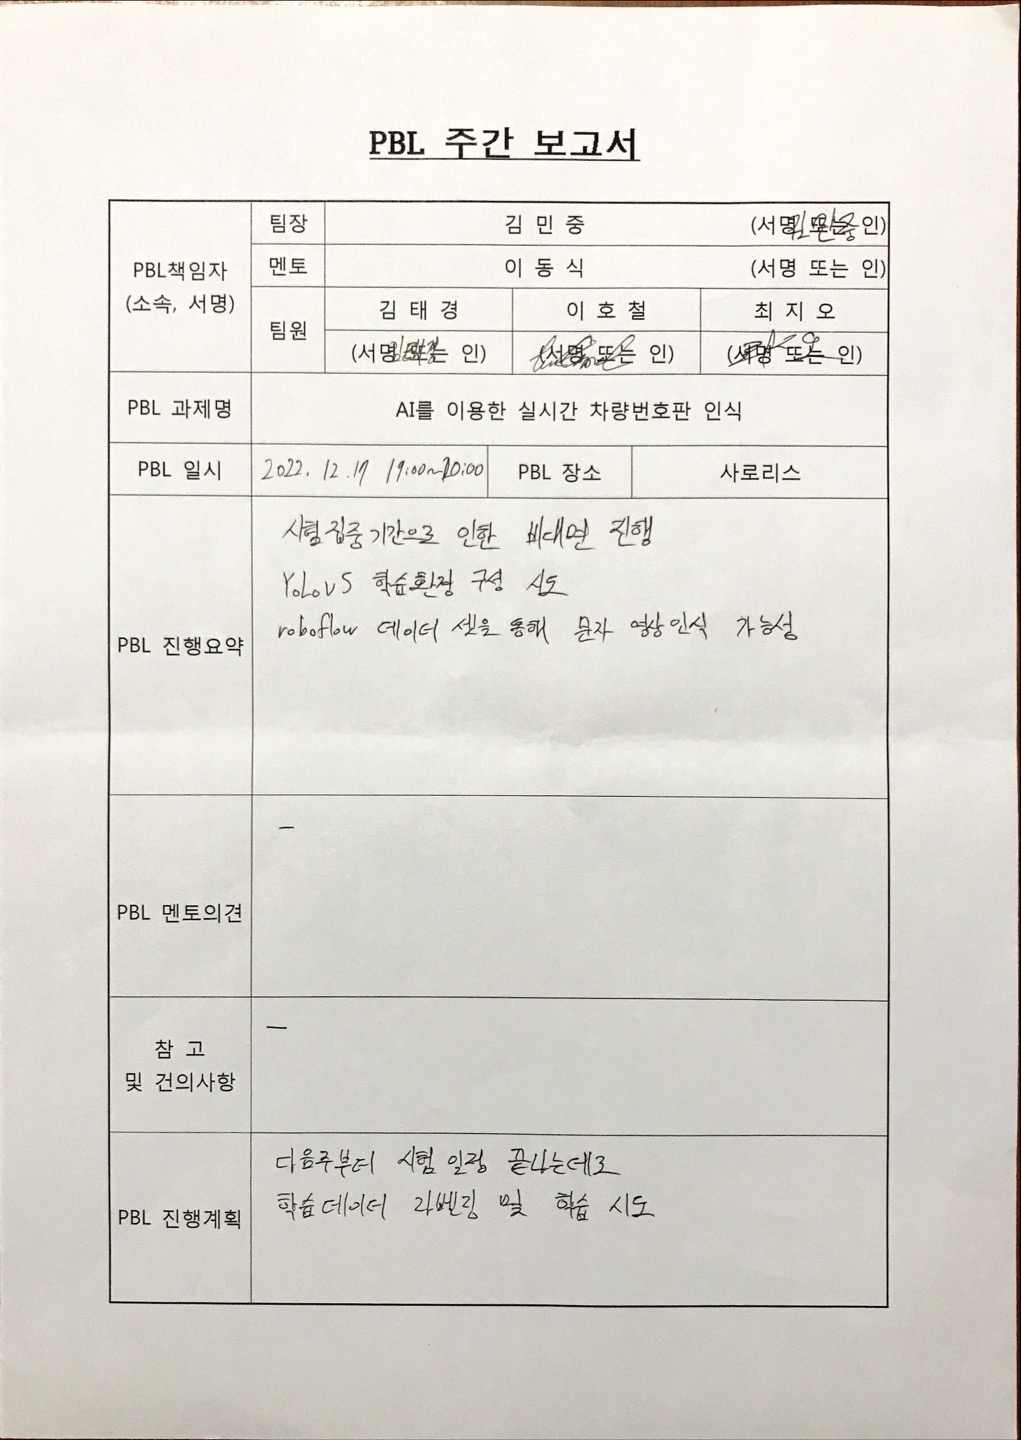 PBL 주간 보고서
PBL책임자
(소속, 서명)
팀장
김 민 중
(서명 또는 인)
김민중
멘토
이 동 식
(서명 또는 인)
팀원
김 태 경
이 호 철
최 지 오
(서명 또는 인)
(서명 또는 인)
(서명 또는 인)
PBL 과제명
AI를 이용한 실시간 차량번호판 인식
PBL 일시
2022. 12. 17 19:00~20:00
PBL 장소
사로리스
PBL 진행요약
시험집중기간으로 인한 비대면 진행
YoLov5 학습환경 구성 시도
roboflow 데이터 셋을 통해 문자 영상인식 가능성
PBL 멘토의견
—
참 고
및 건의사항
—
PBL 진행계획
다음주부터 시험 일정 끝나는데로
학습데이터 라벨링 및 학습 시도